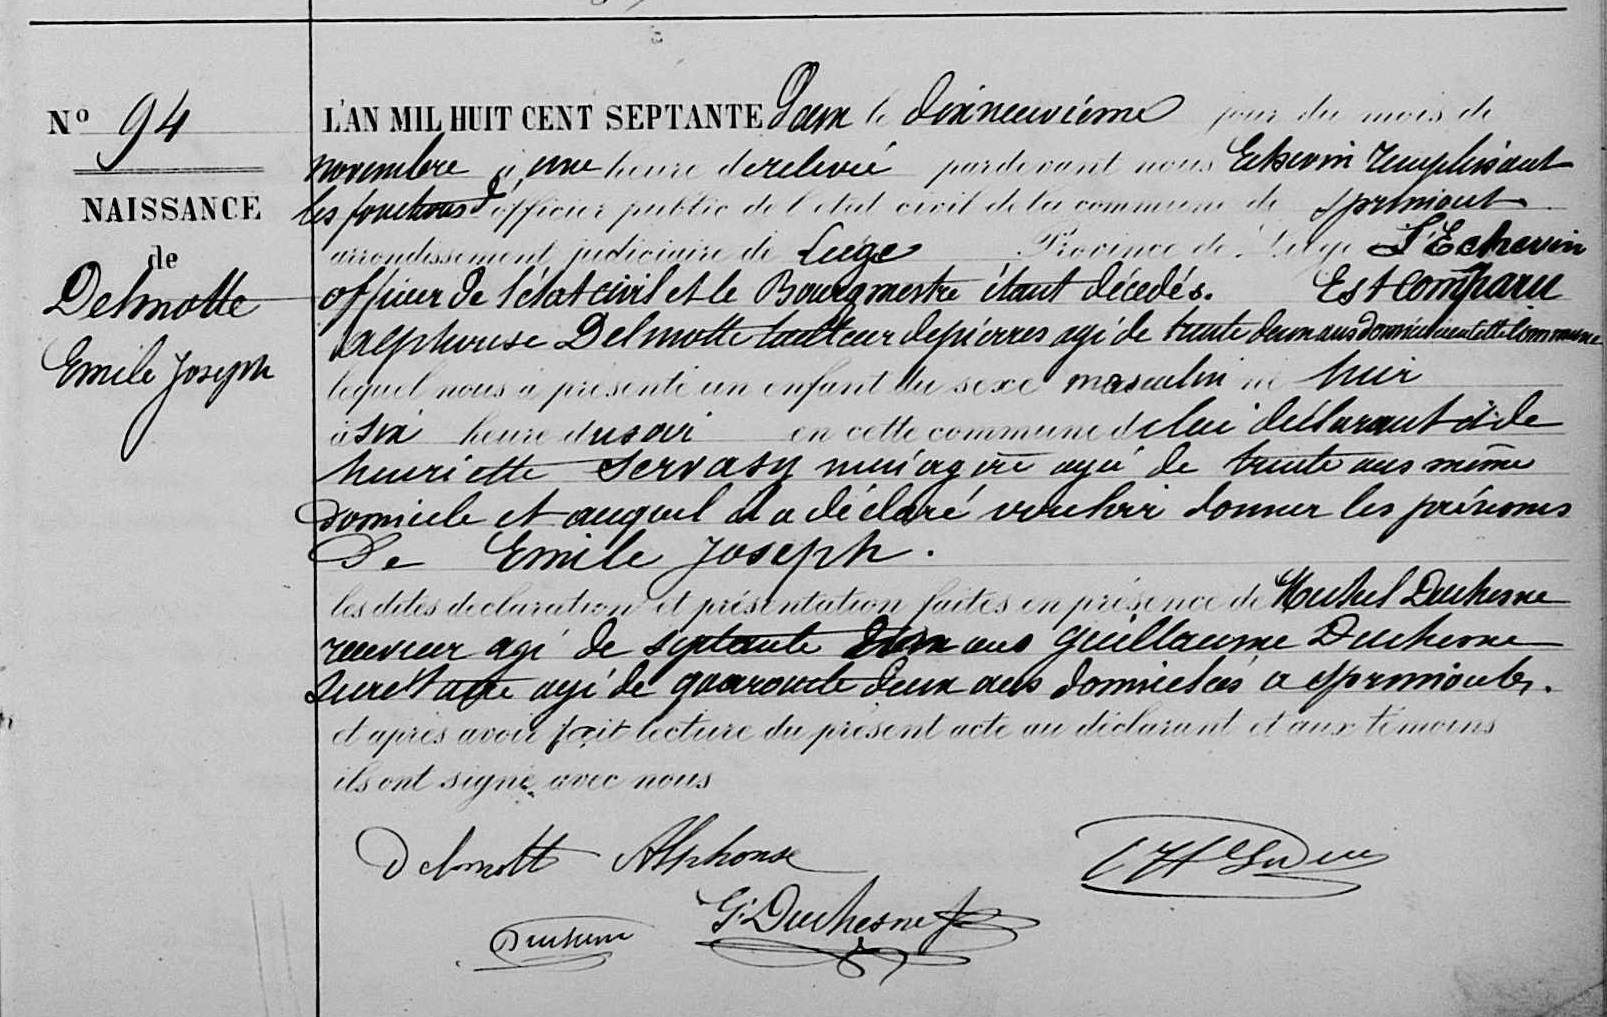 Nº 94
NAISSANCE
de
Delmotte
Emile Joseph
L'AN MIL HUIT CENT SEPTANTE Deux le dixneuvième jour du mois de
novembre à une heure de relevée pardevant nous Echevin remplissant
les fonctions d'officier public de l'état civil de la commune de Sprimont
arrondissement judiciaire de Liége Province de Liége L'Echevin
officier de l'état civil et le Bourgmestre étant décedés. Est Comparu
Alphonse Delmotte tailleur de pierres agé de trente deux ans domicilié en cette Commune
lequel nous a présenté un enfant du sexe masculin né hier
à six heure du soir en cette commune de lui déclarant et de
henriette Servasy ménagère agée de trente ans même
domicile et auquel il a déclaré vouloir donner les prénoms
De Emile Joseph.
les dites déclaration et présentation faites en présence de Michel Duchesne
receveur agé de septante deux ans Guillaume Duchesne
agé de quarante deux ans domiciliés a Sprimont.
et après avoir fait lecture du présent acte au déclarant et aux témoins
ils ont signé avec nous
Delmotte Alphonse
G. Duchesne
Duchesne